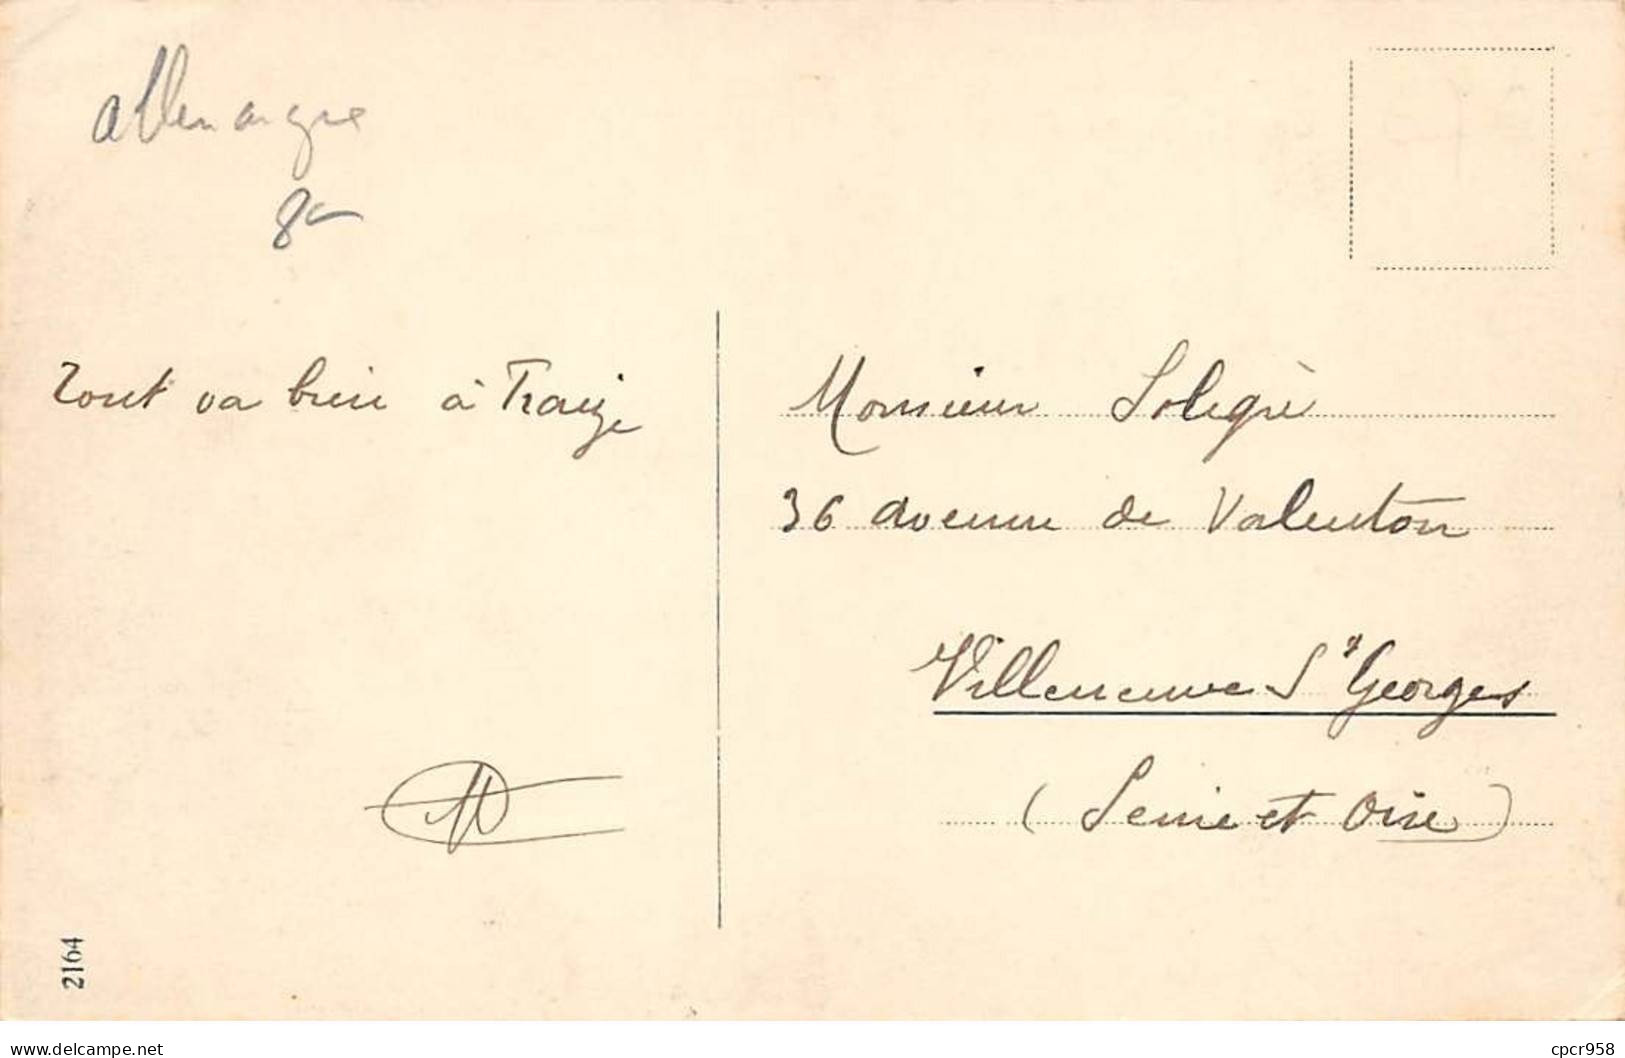 allemagne
8€
Tout va bien à Traize
Monsieur Soligrè
36 avenue de Valenton
Villeneuve St Georges
(Seine et Oise)
2164
www.delcampe.net
cpcr958